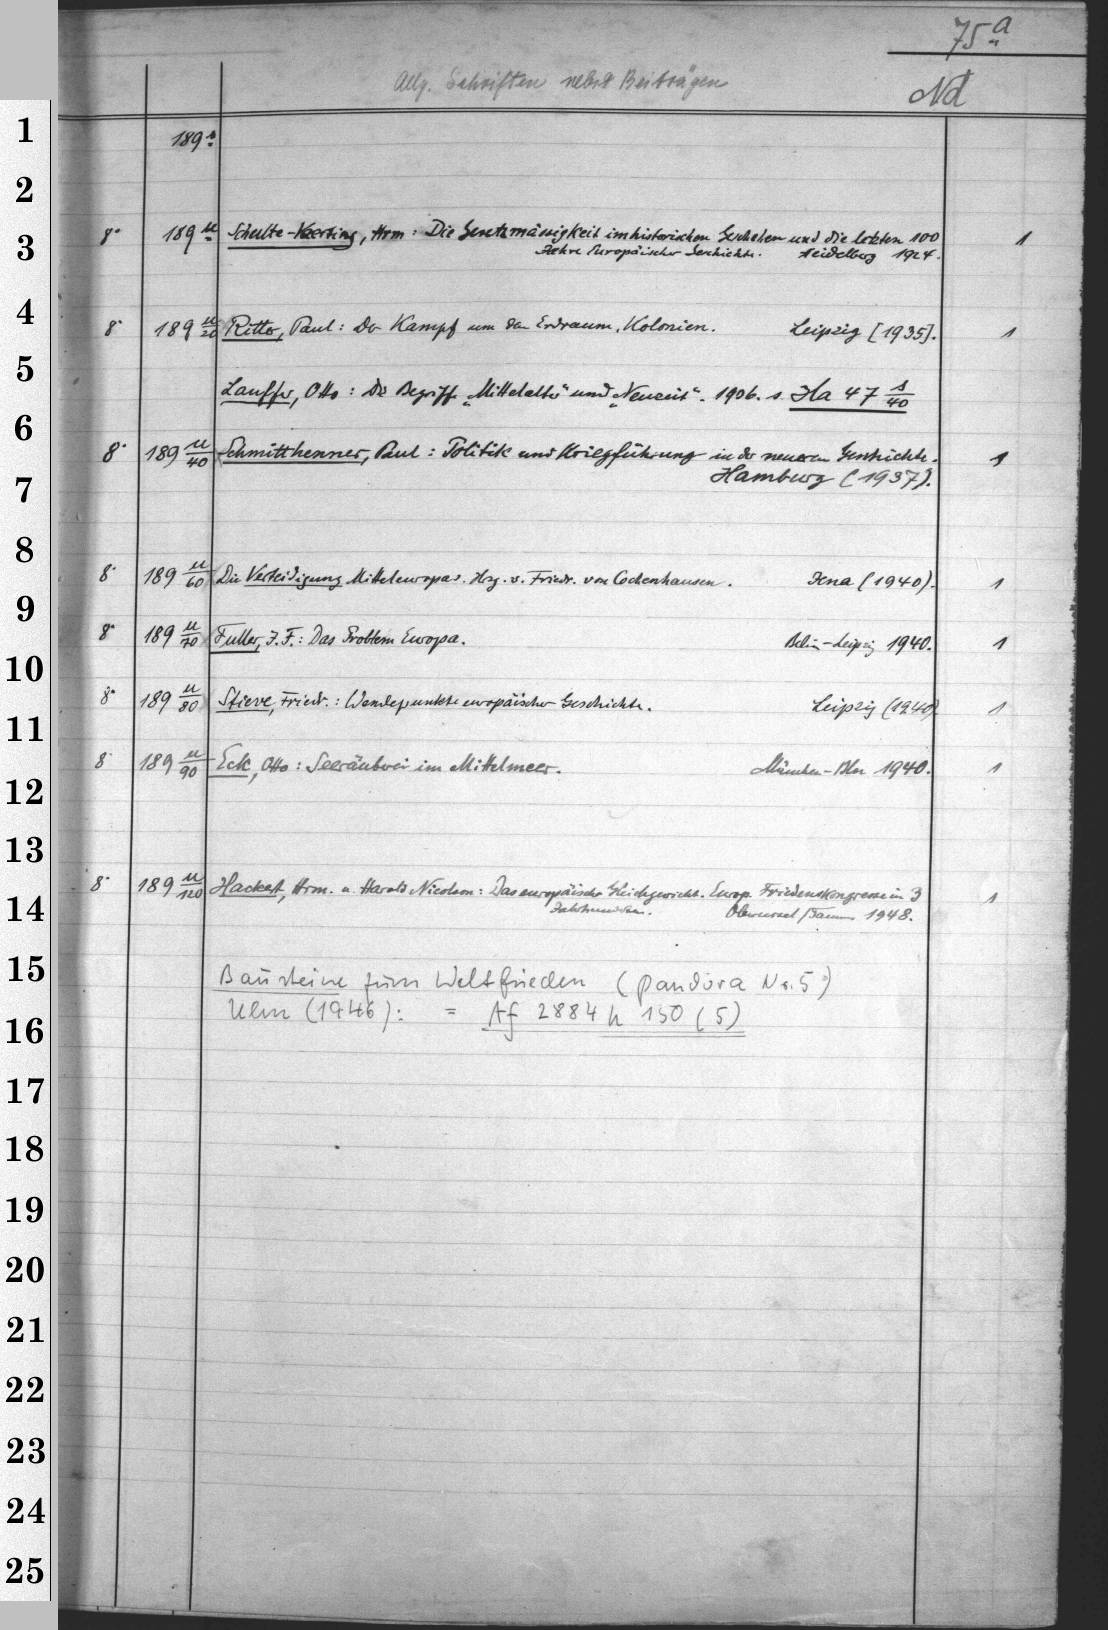 75a
Allg. Schriften nebst Beiträgen
Nd
1
189
2
3
8° 189 u Schulte-Vaerting, Hrm: Die Gesetzmässigkeit im historischen Geschehen und die letzten 100 1
Jahre Europäischer Geschichte. Heidelberg 1924.
4
8° 189 u/20 Ritter, Paul: Der Kampf um den Erdraum. Kolonien. Leipzig [1935]. 1
5
Lauffer, Otto: Die Begriffe „Mittelalter“ und „Neuzeit“. 1906. s. Ha 47 s/40
6
8° 189 u/40 Schmitthenner, Paul: Politik und Kriegführung in der neueren Geschichte. 1
7
Hamburg (1937).
8
8° 189 u/60 Die Verteidigung Mitteleuropas. Hrg. v. Friedr. von Cochenhausen. Jena (1940). 1
9
8° 189 u/70 Fuller, J. F.: Das Problem Europa. Berlin-Leipzig 1940. 1
10
8° 189 u/80 Stieve, Friedr.: Wendepunkte europäischer Geschichte. Leipzig (1940) 1
11
8° 189 u/90 Eck, Otto: Seeräuberei im Mittelmeer. München-Bln 1940. 1
12
13
8° 189 u/120 Hackert, Hrm. u. Harold Nicolson: Das europäische Gleichgewicht. Europ. Friedenskongresse in 3 1
14
Jahrhunderten. Oberursel/Taunus 1948.
15
Bausteine zum Weltfrieden (Pandora Nr. 5)
Ulm (1946): = Af 2884 h 150 (5)
16
17
18
19
20
21
22
23
24
25